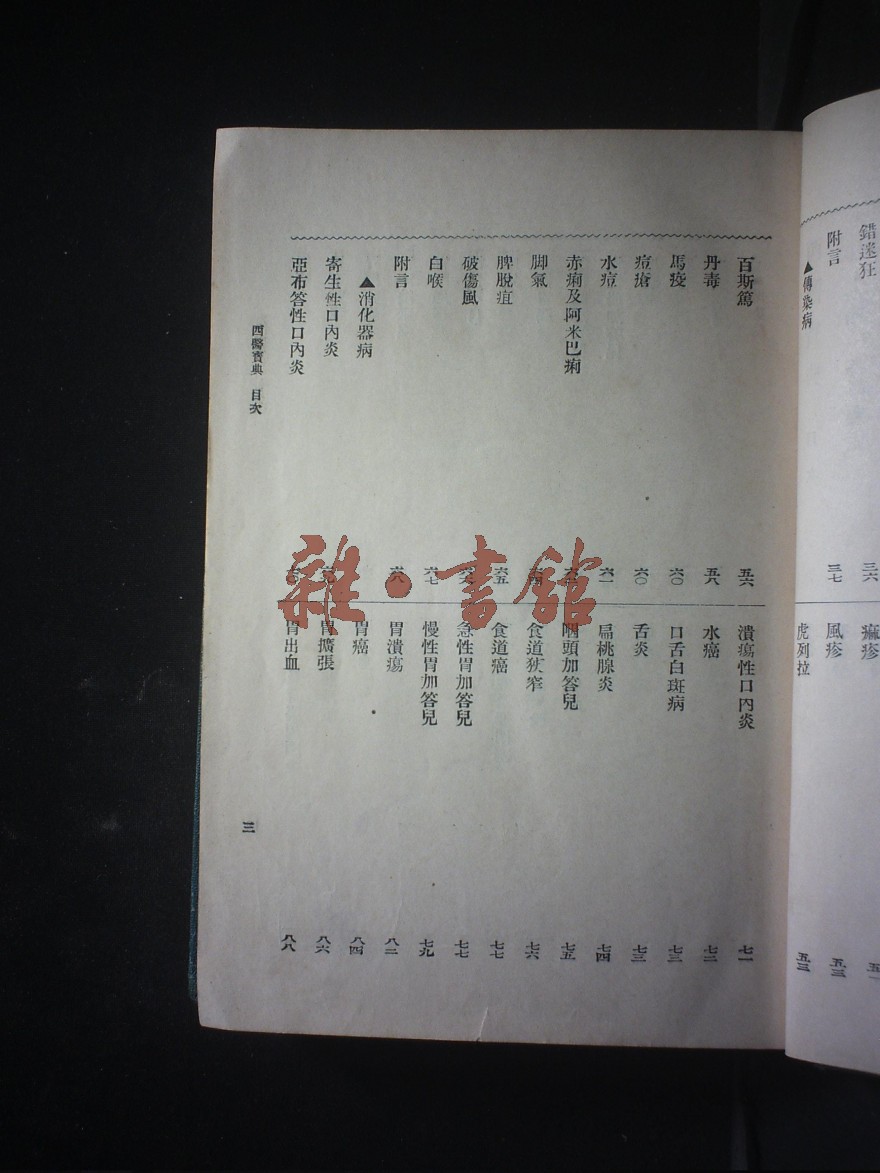 錯迷狂 三六
附言 三七
▲傳染病
痲疹
風疹 五三
虎列拉 五三
百斯篤 五六
丹毒 五八
馬疫 六〇
痘瘡 六〇
水痘 六一
赤痢及阿米巴痢
脚氣
脾脫疽 六五
破傷風
白喉 六七
附言 六八
▲消化器病
寄生性口內炎
亞布答性口內炎
潰瘍性口內炎 七一
水癌 七二
口舌白斑病 七三
舌炎 七三
扁桃腺炎 七四
咽頭加答兒 七五
食道狹窄 七六
食道癌 七七
急性胃加答兒 七七
慢性胃加答兒 七九
胃潰瘍 八二
胃癌 八四
胃擴張 八六
胃出血 八八
西醫寶典 目次
三
雜·書館